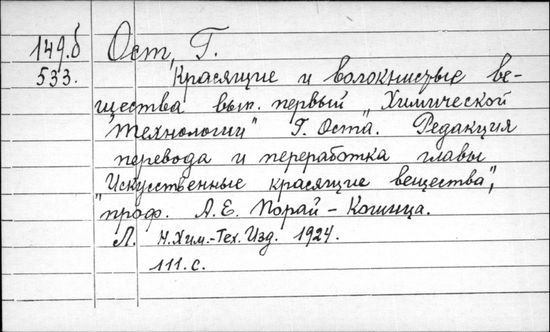 149.б Ост, Г.
533. Красящие и волокнистые ве-
щества вып. первый „Химической
технологии" Г. Оста. Редакция
перевода и переработка главы
"Искусственные красящие вещества",
проф. А.Е. Порай-Кошица.
Л. Н.Хим.-Тех.Изд. 1924.
111.с.